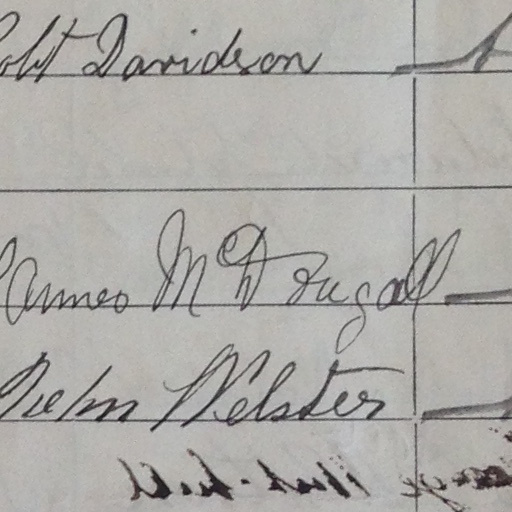 Robt Davidson
James McDougall
John Webster